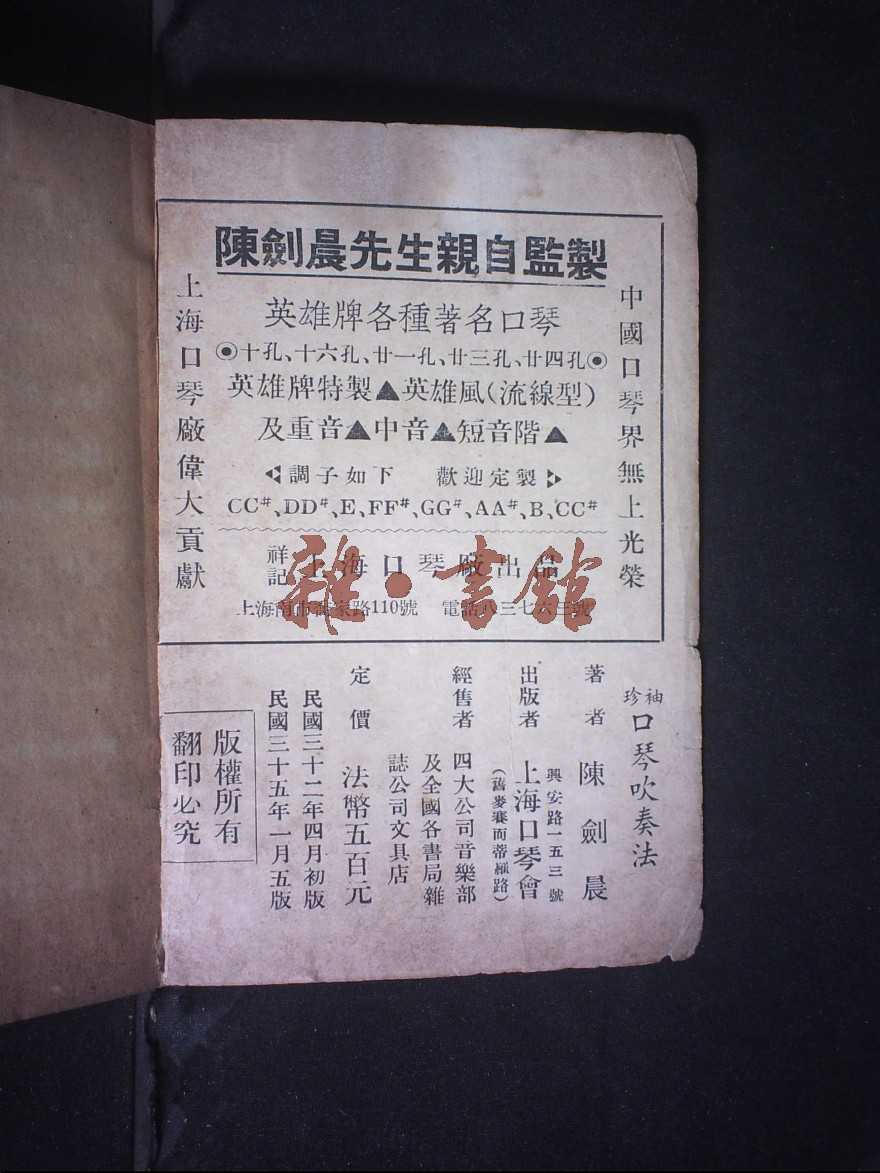 陳劍晨先生親自監製
中國口琴界無上光榮
英雄牌各種著名口琴
◉十孔、十六孔、廿一孔、廿三孔、廿四孔◉
英雄牌特製▲英雄風(流線型)
及重音▲中音▲短音階▲
調子如下 歡迎定製
CC#、DD#、E、FF#、GG#、AA#、B、CC#
祥記上海口琴廠出品
上海南市喬家路110號 電話八三七六三號
上海口琴廠偉大貢獻
雜·書館
袖珍口琴吹奏法
著者 陳劍晨
興安路一五三號
出版者 上海口琴會
(舊麥賽而蒂羅路)
經售者 四大公司音樂部
及全國各書局雜
誌公司文具店
定價 法幣五百元
民國三十二年四月初版
民國三十五年一月五版
版權所有
翻印必究